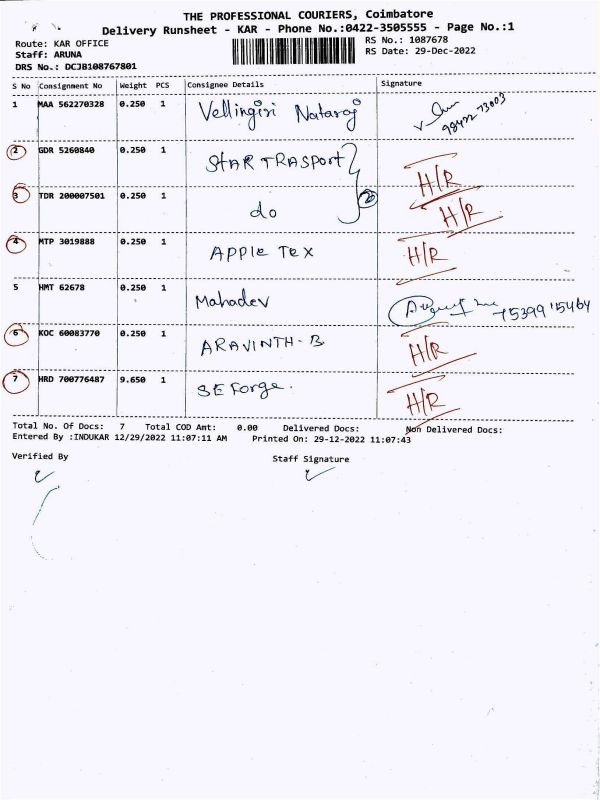 THE PROFESSIONAL COURIERS, Coimbatore
Delivery Runsheet - KAR - Phone No.:0422-3505555 - Page No.:1
Route: KAR OFFICE
RS No.: 1087678
Staff: ARUNA
RS Date: 29-Dec-2022
DRS No.: DCJB108767801
S No Consignment No Weight PCS Consignee Details Signature
1 MAA 562270328 0.250 1 Vellingiri Nataraj 98422 73003
2 GDR 5260840 0.250 1 STAR TRASport H/R
3 TDR 200007501 0.250 1 do 2 H/R
4 MTP 3019888 0.250 1 APPle Tex H/R
5 HMT 62678 0.250 1 Mahadev 75399 15464
6 KOC 60083770 0.250 1 ARAVINTH-B H/R
7 HRD 700776487 9.650 1 SE Forge. H/R
Total No. Of Docs: 7 Total COD Amt: 0.00 Delivered Docs: Non Delivered Docs:
Entered By :INDUKAR 12/29/2022 11:07:11 AM Printed On: 29-12-2022 11:07:43
Verified By Staff Signature